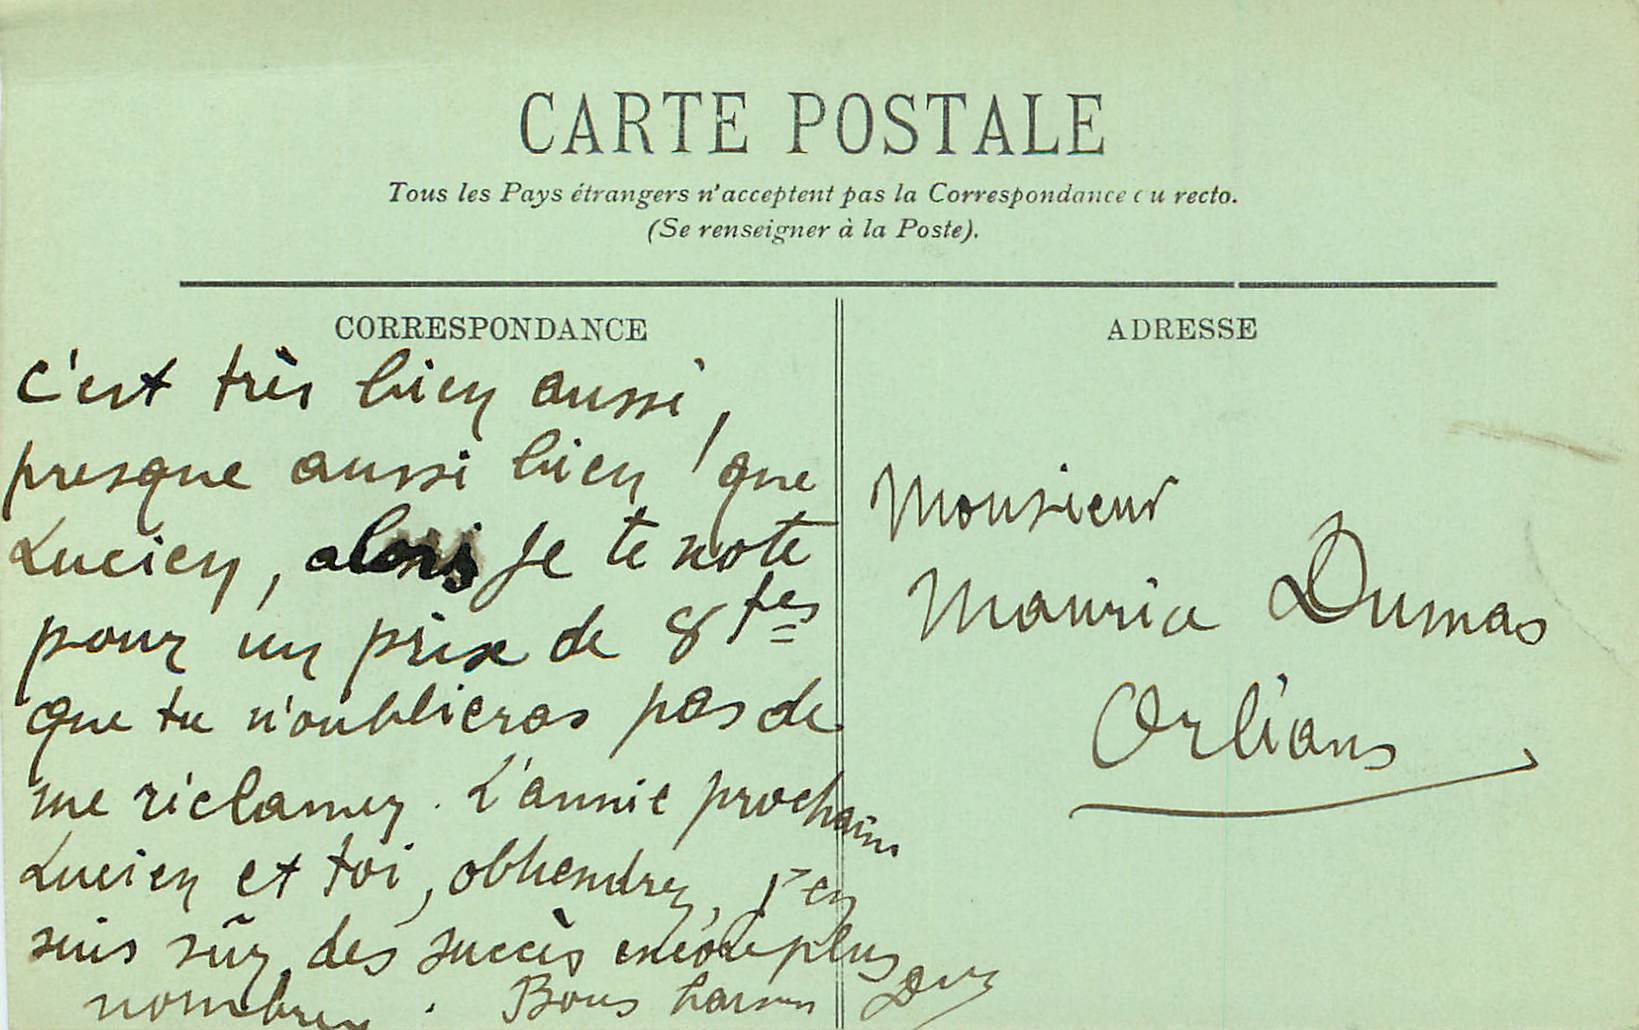 CARTE POSTALE
Tous les Pays étrangers n'acceptent pas la Correspondance au recto.
(Se renseigner à la Poste).
CORRESPONDANCE
c'est très bien aussi,
presque aussi bien que
Lucien, alors je te note
pour un prix de 8
que tu n'oublieras pas de
me réclamer. L'année prochaine
Lucien et toi, obtiendrez, j'en
suis sûr, des succès encore plus
nombreux. Bons
ADRESSE
Monsieur
Maurice Dumas
Orléans